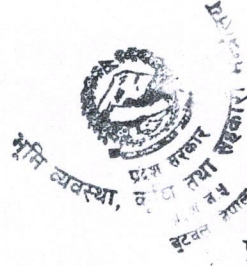 भूमि व्यवस्था, कृषि तथा सहकारी
प्रदेश सरकार
बुटवल नेपाल